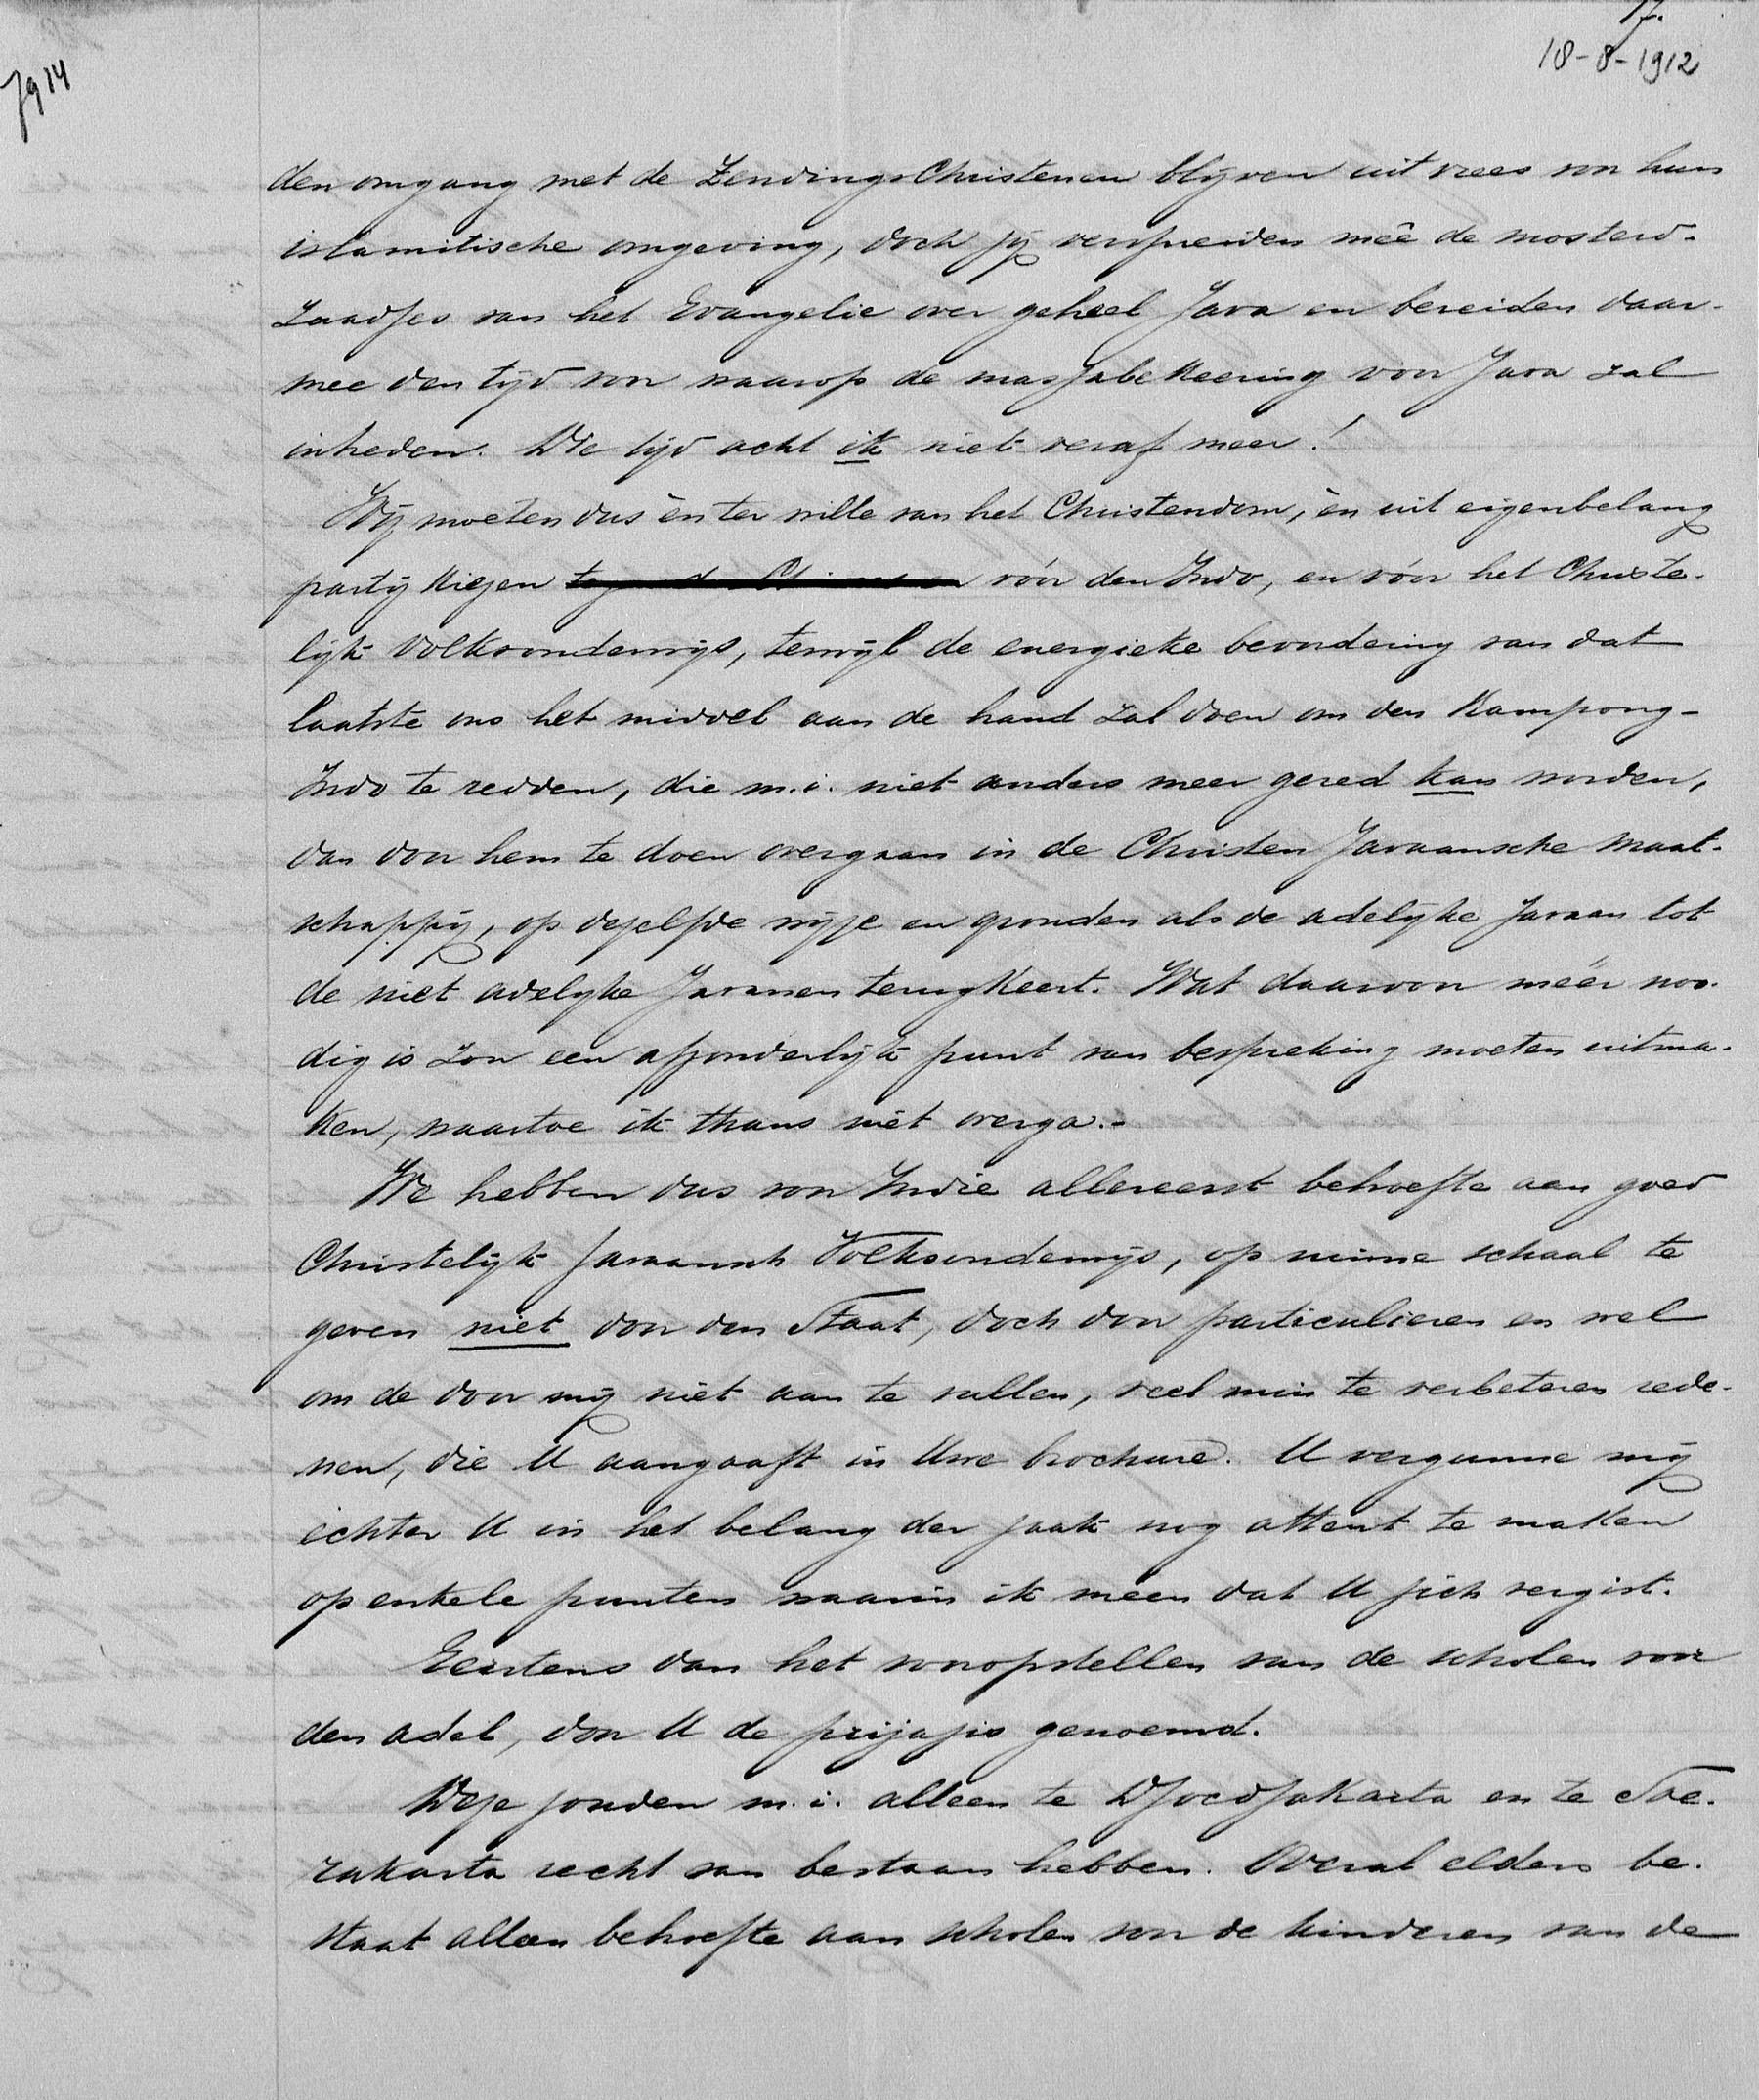 17.
18-8-1912
7914
den omgang met de Zendings Christenen blijven uit vrees voor hun
islamitische omgeving, doch zij verspreiden meê de mosterd-
zaadjes van het Evangelie over geheel Java en bereiden daar-
mee den tijd voor waarop de massabekeering voor Java zal
intreden. Die tijd acht ik niet veraf meer!
Wij moeten dus èn ter wille van het Christendom, èn uit eigenbelang
partij kiezen vóór den Indo, en vóór het Christe-
lijk volksonderwijs, terwijl de energieke bevordering van dat
laatste ons het middel aan de hand zal doen om den Kampong-
Indo te redden, die m.i. niet anders meer gered kan worden,
dan door hem te doen overgaan in de Christen Javaansche Maat-
schappij, op dezelfde wijze en gronden als de adelijke Javaan tot
de niet adelijke Javanen terugkeert. Wat daarvoor méér noo-
dig is zou een afzonderlijk punt van bespreking moeten uitma-
ken, waartoe ik thans niet overga.-
We hebben dus voor Indie allereerst behoefte aan goed
Christelijk Javaansch Volksonderwijs, op ruime schaal te
geven niet door den Staat, doch door particulieren en wel
om de door mij niet aan te vullen, veel min te verbeteren rede-
nen, die U aangaaft in Uwe brochure. U vergunne mij
echter U in het belang der zaak nog attent te maken
op enkele punten waarin ik meen dat U zich vergist.
Eerstens dan het vooropstellen van de scholen voor
den adel, door U de prijajis genoemd.
Deze zouden m.i. alleen te Djocdjakarta en te Soe-
rakarta recht van bestaan hebben. Overal elders be-
staat alleen behoefte aan scholen voor de kinderen van de